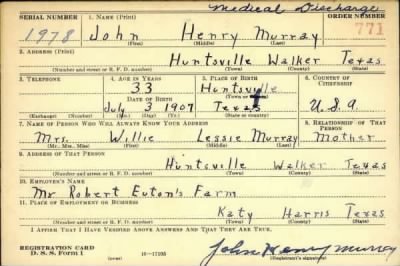 Medical Discharge
SERIAL NUMBER 1. NAME (Print) ORDER NUMBER
1978 John Henry Murray 771
(First) (Middle) (Last)
2. ADDRESS (Print)
Huntsville Walker Texas
(Number and street or R. F. D. number) (Town) (County) (State)
3. TELEPHONE 4. AGE IN YEARS 5. PLACE OF BIRTH 6. COUNTRY OF CITIZENSHIP
33 Huntsville
DATE OF BIRTH (Town or county)
July 3 1907 Texas U.S.A
(Exchange) (Number) (Mo.) (Day) (Yr.) (State or country)
7. NAME OF PERSON WHO WILL ALWAYS KNOW YOUR ADDRESS 8. RELATIONSHIP OF THAT PERSON
Mrs. Willie Lessie Murray Mother
(Mr., Mrs., Miss) (First) (Middle) (Last)
9. ADDRESS OF THAT PERSON
Huntsville Walker Texas
(Number and street or R. F. D. number) (Town) (County) (State)
10. EMPLOYER'S NAME
Mr Robert Euton's Farm
11. PLACE OF EMPLOYMENT OR BUSINESS
Katy Harris Texas
(Number and street or R. F. D. number) (Town) (County) (State)
I AFFIRM THAT I HAVE VERIFIED ABOVE ANSWERS AND THAT THEY ARE TRUE.
REGISTRATION CARD
D. S. S. Form 1 16-17105 John Henry Murray
(Registrant's signature)